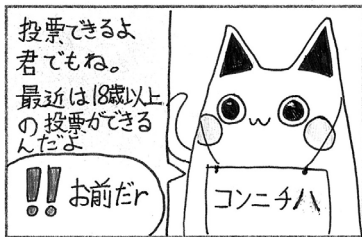 投票できるよ
君でもね。
最近は18歳以上
の投票ができる
んだよ
!! お前だr
コンニチハ